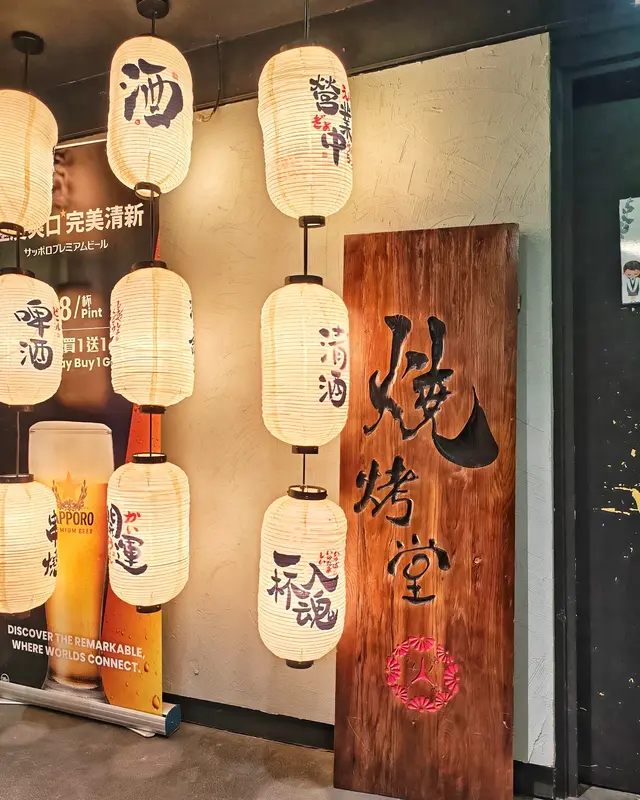 酒
営業中
えい
ぎょう
爽口 完美清新
サッポロプレミアムビール
8/杯
Pint
買1送1
ay Buy 1 G
啤酒
清酒
SAPPORO
PREMIUM BEER
串燒
開運
かい
一杯入魂
DISCOVER THE REMARKABLE,
WHERE WORLDS CONNECT.
燒烤堂
火